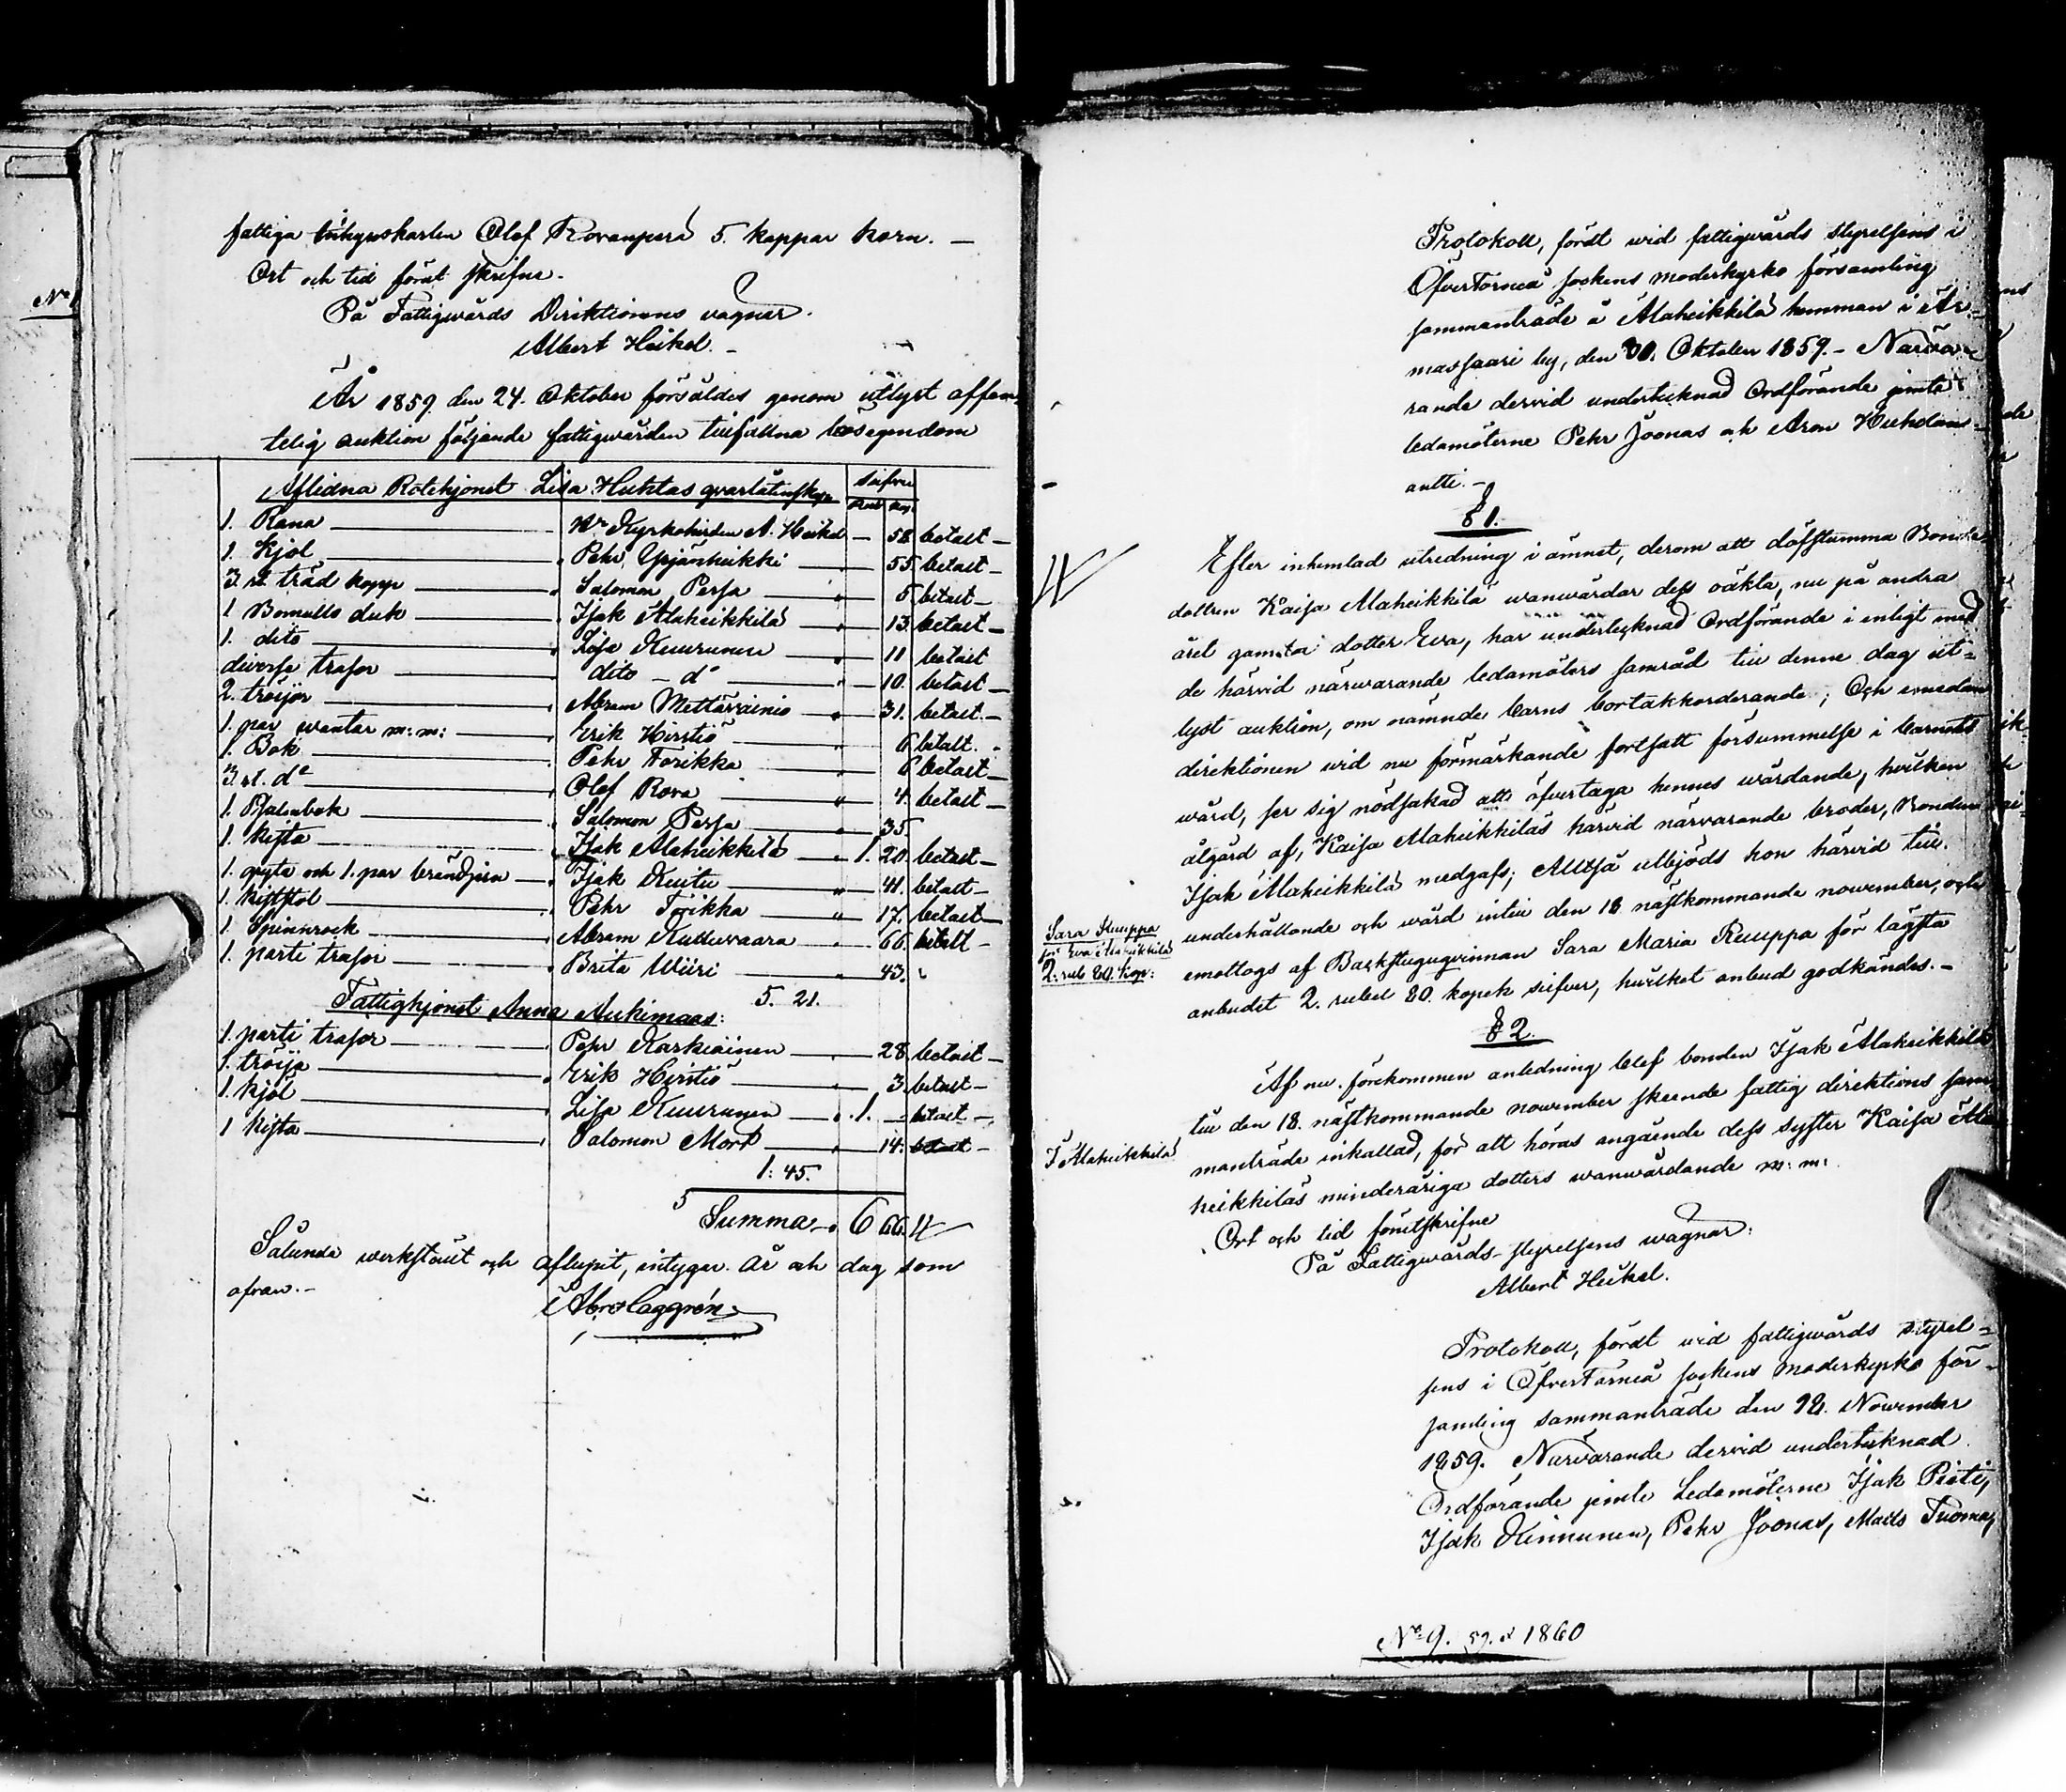 fattiga inhyseskarlen Olof Rovanperä 5. kappar korn. —
Ort och tid förut skrifne.
På Fattigwårds Direktionens vägnar.
Albert Heikel. —
År 1859 den 24. Oktober försåldes genom utlyst offen-
telig auktion följande fattigwården tillfallna lösegendom
Aflidna Rotehjonet Lisa Huhtas qvarlåtenskap silfver
1. Rana — Hr Kyrkoherden A. Heikel — 58 betalt —
1. Kjol — Pehr Yrjänheikki — 55. betalt —
3 st. träd kopp — Salomon Persa — 5 betalt —
1 Bomulls duk — Isak Alaheikkilä — 13. betalt —
1. dito — Lisa Kuurunen — 11 betalt
diverse trasor — dito — do — 10. betalt —
2. tröijor — Abram Mettävainio — 31. betalt. —
1. par wantar m: m: — Erik Hirstiö — 6 betalt. -
1. Bok — Pehr Torikka — 6 betalt —
3 st. do — Olof Rova — 4. betalt —
1. Psalmbok — Salomon Persa — 35
1. kista — Isak Alaheikkilä — 1. 20. betalt —
1. gryta och 1. par brändjern — Isak Kuitu — 41. betalt —
1. kistståt — Pehr Torikka — 17. betalt —
1. Spinnrock — Abram Kuttuvaara — 66 betalt —
1. parti trasor — Brita Wiiri — 43.
5. 21.
Fattighjonet Anna Aukimaas:
1. parti trasor — Pehr Karkiainen — 28 betalt —
1. tröija — Erik Hirstiö — 3. betalt —
1. kjol — Lisa Kuurunen — 1. — betalt —
1 kista — Salomon Mort — 14. betalt —
1: 45.
Summa 6 66.
Sålunda werkstält och aflupit, intygar. År och dag som
ofvan. —
Abr Laggrén
Protokoll, fördt wid fattigwårds styrelsens i
ÖfverTorneå sockens moderkyrko församling
sammanträde å Alaheikkilä hemman i Ar-
massaari by, den 30. Oktober 1859. — Närva-
rande dervid undertecknad Ordförande jemte
ledamöterne Pehr Joonas och Aron Huhdan-
antti. —
§ 1.
Efter inhemtad utredning i ämnet, derom att döfstumma Bonde-
dottren Kaisa Alaheikkilä wanwårdar dess oäkta, nu på andra
året gamla dotter Eva, har undertecknad Ordförande i enligt med
de härvid närwarande ledamöters samråd till denne dag ut-
lyst auktion, om nämnde barns bortakkorderande; Och emedan
direktionen wid nu förmärkande fortsatt försummelse i barnets
wård, ser sig nödsakad att öfvertaga hennes wårdande, hvilken
åtgärd af, Kaisa Alaheikkiläs härvid närvarande broder, Bonden
Isak Alaheikkilä medgafs; Alltså utbjöds hon härvid till
underhållande och wård intill den 18 nästkommande november, och
emottogs af Backstuguqvinnan Sara Maria Kuuppa för lägsta
anbudet 2. rubel 80. kopek silfver, hvilket anbud godkändes. —
Sara Kuuppa
för Eva Alaheikkilä
2. rub 80. kop:
§ 2.
Af nu förekommen anledning blef bonden Isak Alaheikkilä
till den 18. nästkommande november skeende fattig direktions sam-
manträde inkallad, för att höras angående dess syster Kaisa Ala-
heikkiläs minderåriga dotters wanwårdande m: m:
I Alaheikkilä
Ort och tid förutskrifne
På Fattigwårds-styrelsens wägnar:
Albert Heikel.
Protokoll, fördt wid fattigwårds styrel-
sens i ÖfverTorneå sockens moderkyrko för-
samling sammanträde den 18. November
1859. Närvarande dervid undertecknad
Ordförande jemte Ledamöterne Isak Pieti,
Isak Kinnunen, Pehr Joonas, Mats Tuomas,
No 9. 59. a 1860